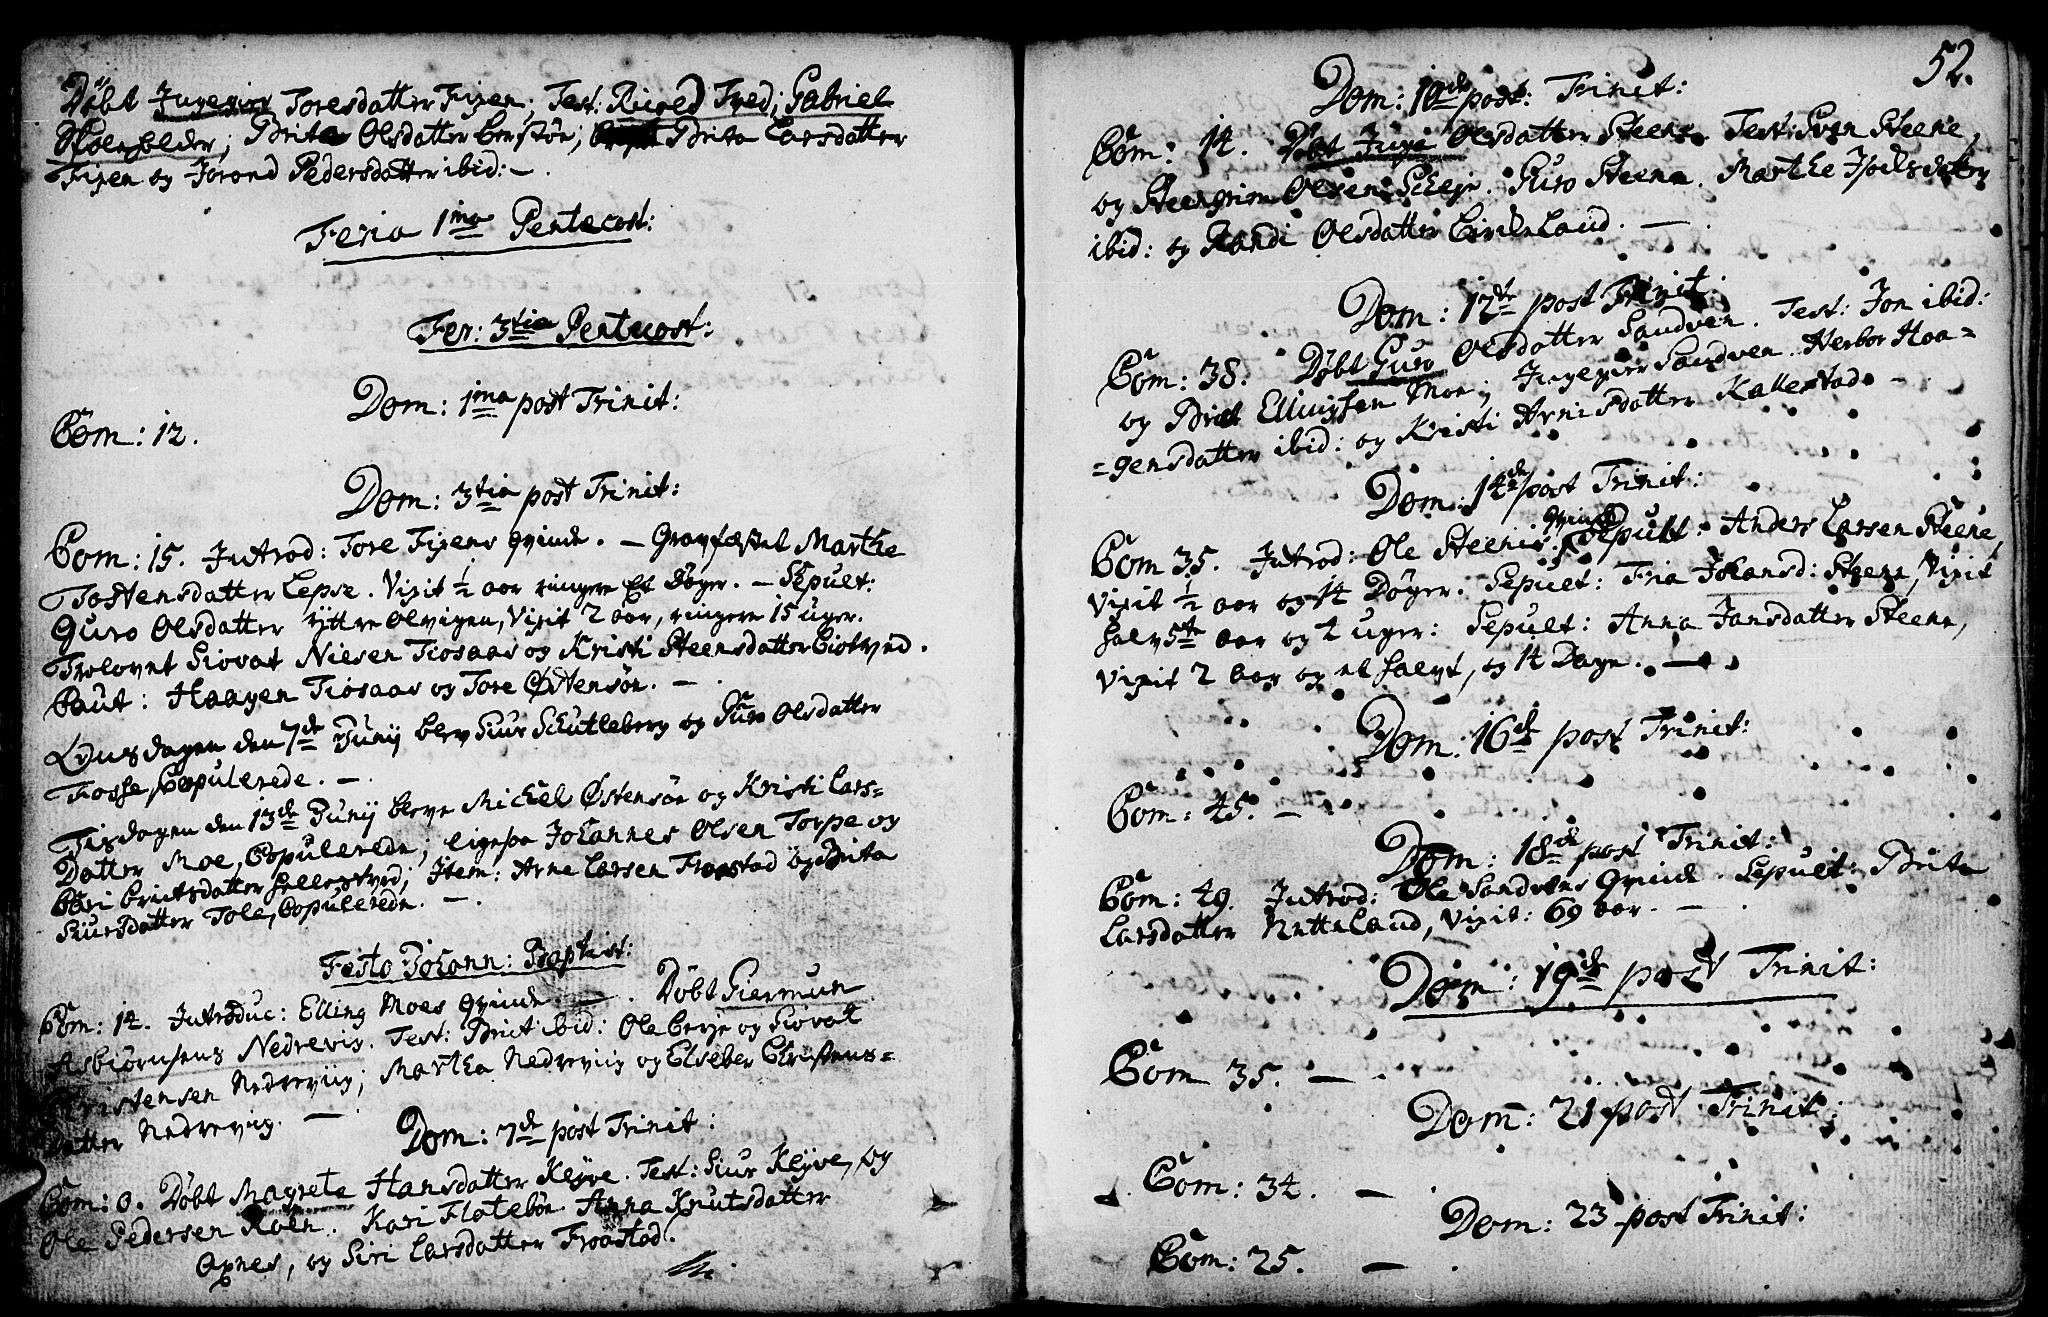 Døbt Ingegier Toresdatter Fixen. Test: Sived Fred; Gabriel
Skoleholder; Brita Olsdatter Berstøn; Brita Larsdatter
Fixen og Jorond Pedersdatter ibid: —.
Feria 1ma Pentecost:
Fer: 3tia Pentecost:
Dom: 1ma post Trinit:
Com: 12.
Dom: 3tia post Trinit:
Com: 15. Introd: Tore Fixens Qvinde. — Gravfæstet Marthe
Tostensdatter Lepse. Vixit ½ aar ringere Et Døger. — Sepult:
Guro Olsdatter yttre Olvigen, Vixit 2 aar, ringere 15 uger.
Trolovet Siovat Nielsen Tiosaas og Kristi Steensdatter Biotved.
Caut: Haagen Tiosaas og Tore Østensøn. —.
Løversdagen den 7de Junij blev Siur Schutleberg og Guro Olsdatter
Fosse Copulerede. —.
Tirsdagen den 13de Junij bleve Michel Østensøn og Kristi Lars=
Datter Moe, Copulerede; ligesaa Johannes Olsen Torpe og
Cari Brutsdatter Hellestved; Item: Arne Larsen Froestad og Brita
Siursdatter Tole, Copulerede. —.
Festo Johann: Baptist:
Com: 14. Introduc: Elling Moes Qvinde. —. Døbt Giermun
Asbiørnsens Nedrevig. Test: Brict ibid: Ole Berje og Siovat
Christensen Nedreviig; Martha Nedreviig og Elseber Christens=
datter Nedrevig. —.
Dom: 7de post Trinit:
Com: 0. Døbt Magrete Hansdatter Kløve. Test: Siur Kløve, og
Ole Pedersen Koln. Kari Flatebøn. Anna Knutsdatter
Axnes, og Siri Larsdatter Froastad.
52.
Dom: 10de post: Trinit:
Com: 14. Døbt Inga Olsdatter Steene. Test: Sven Steene,
og Steengrim Olsen Scheje. Guro Steene. Marthe Joelsdatter
ibid: og Randi Olsdatter Birkeland. —.
Dom: 12te post Trinit.
Com: 38. Døbt Guro Olsdatter Sandven. Test: Jon ibid:
og Brict Ellingsen Moe; Ingegier Sandven. Herbor Haa=
=gensdatter ibid: og Kristi Arnisdatter Kallestad. —
Dom: 14de post Trinit:
Com 35. Introd: Ole Steenis Qvinde. Sepult: Anders Larsen Steene,
Vixit ½ aar og 14 Døger. Sepult: Fria Johansd: Steene, Vixit
halv 5te aar og 2 uger: Sepult: Anna Jansdatter Steene,
Vixit 2 aar og et halvt, og 14 Dage. —.
Dom: 16de post Trinit:
Com: 45. —
Dom: 18de post Trinit:
Com: 49. Introd: Ole Sandvens Qvinde. Sepult: Brita
Larsdatter Netteland, Vixit: 69 aar. —.
Dom: 19de post Trinit:
Com 35. —.
Dom: 21 post Trinit:
Com: 34. —.
Dom: 23 post Trinit:
Com: 25. —.